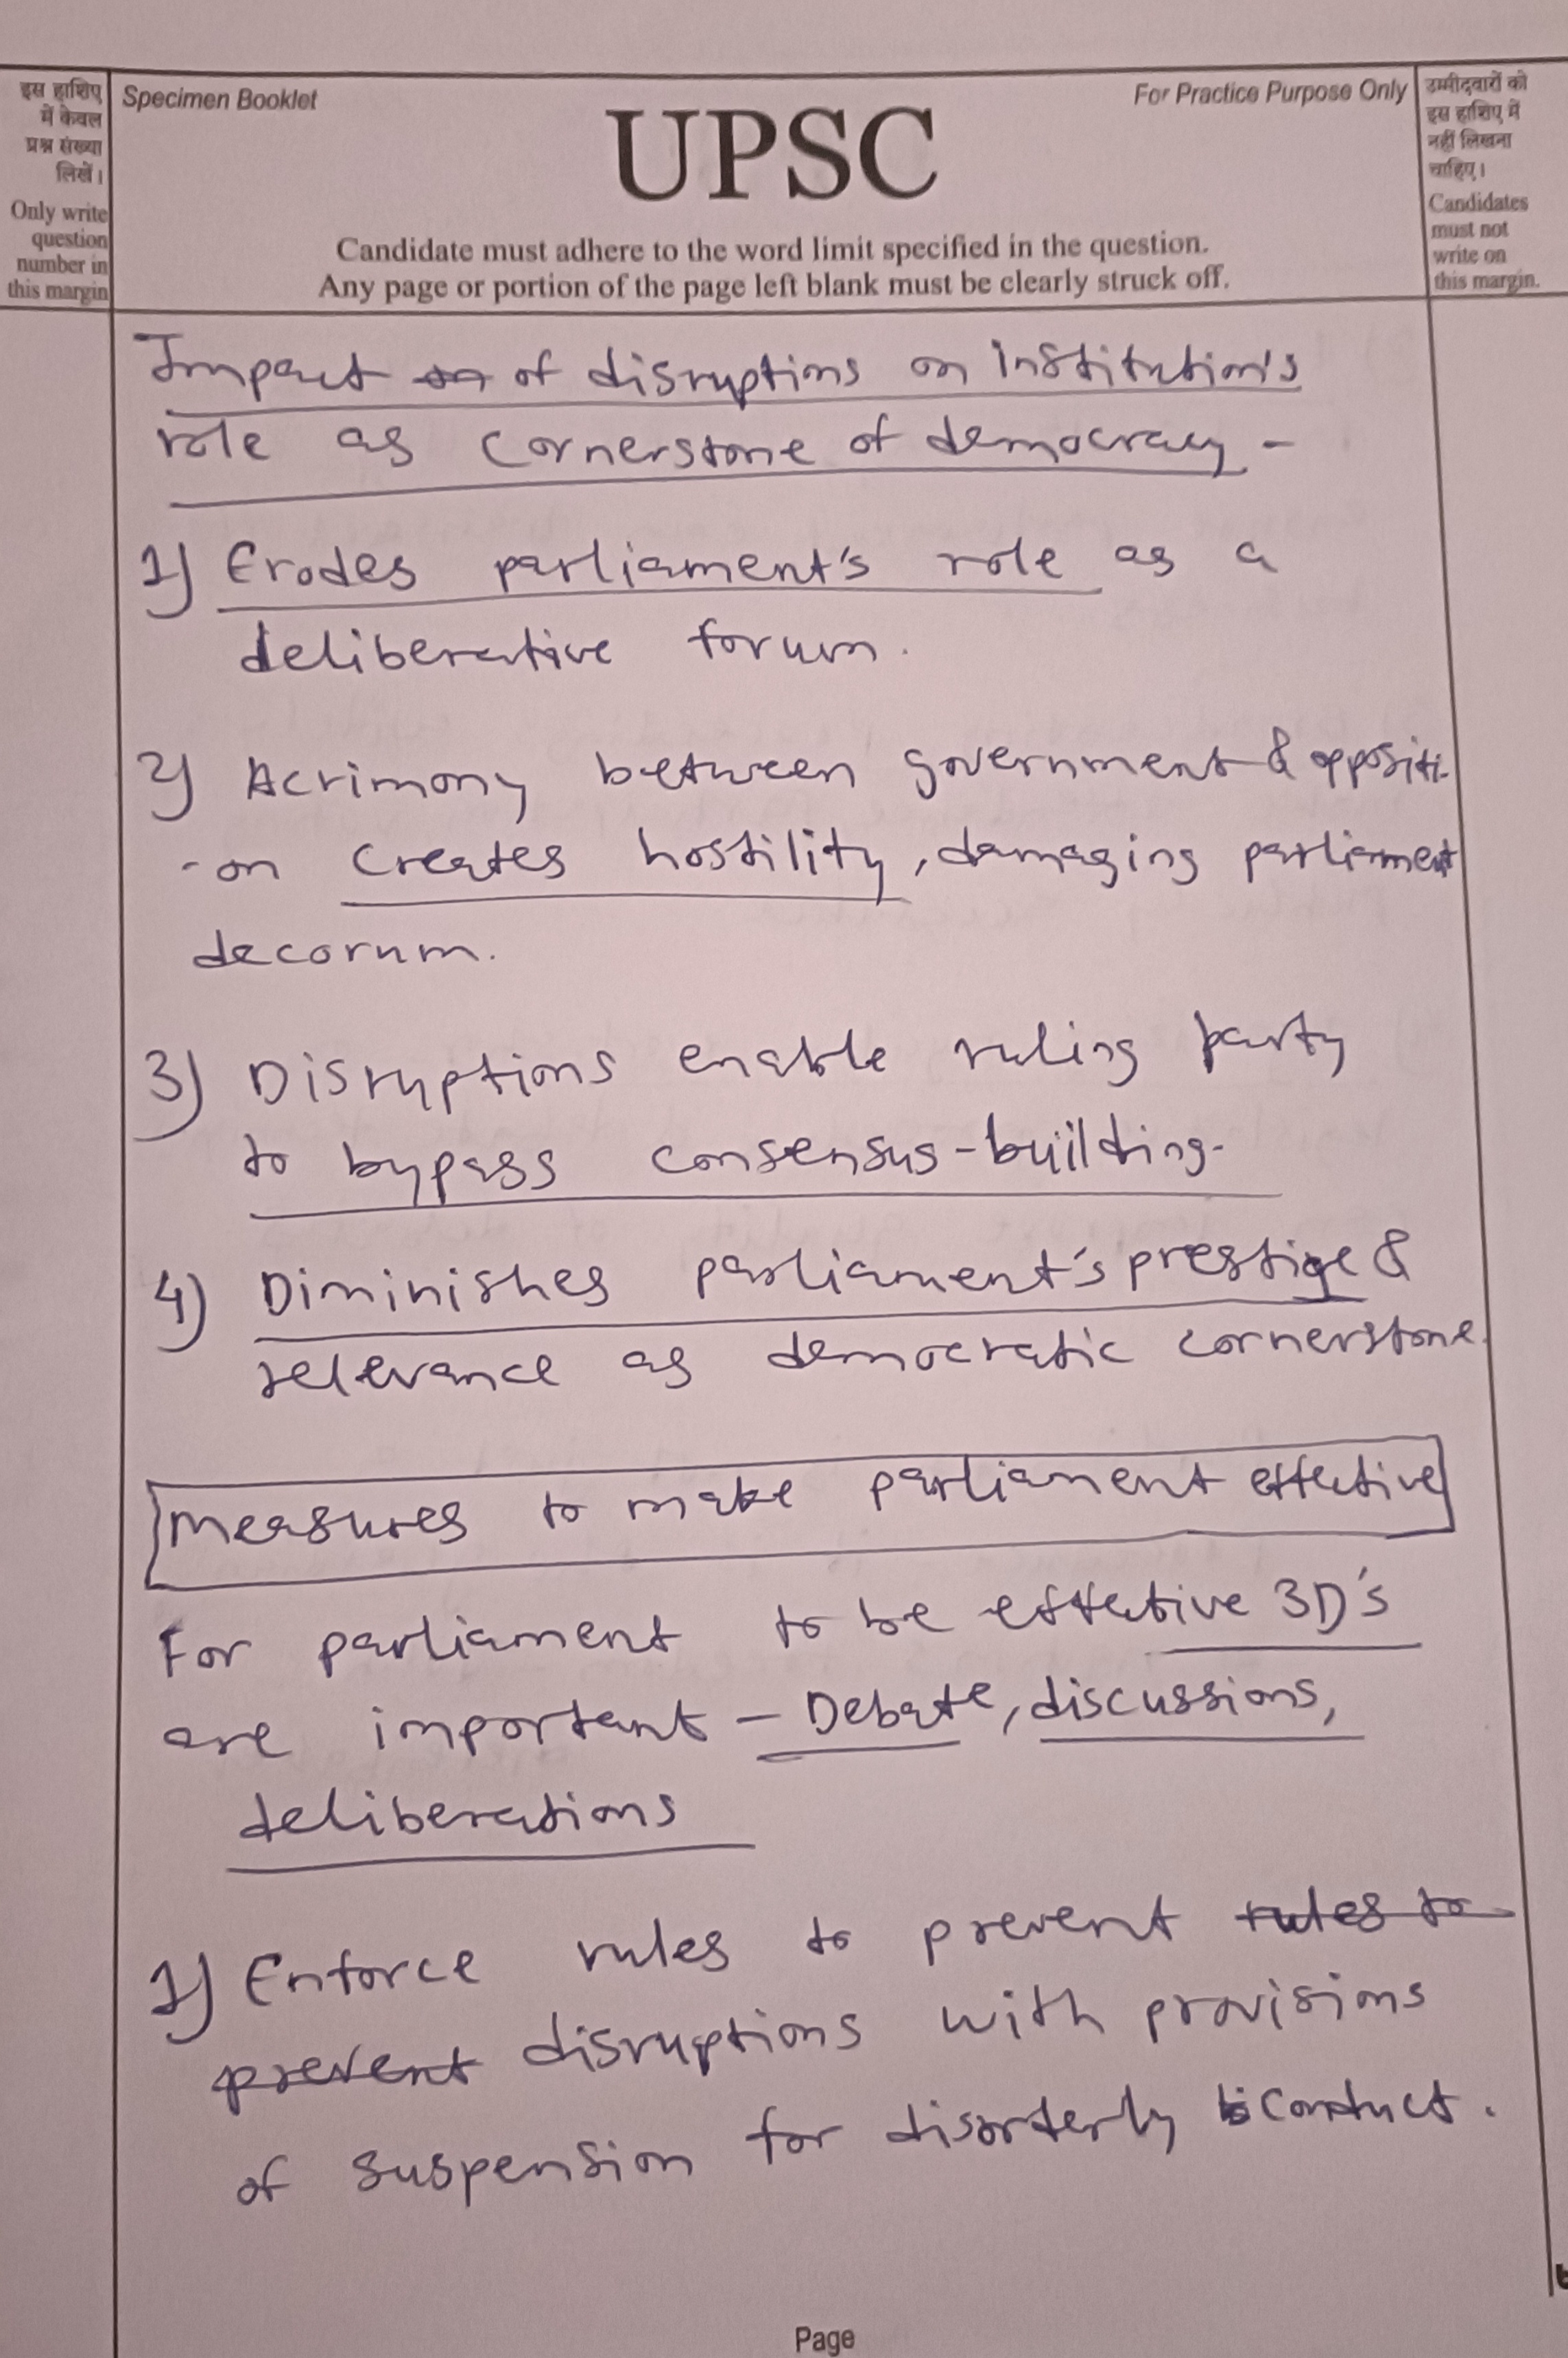 इस हाशिए
में केवल
प्रश्न संख्या
लिखें।
Only write
question
number in
this margin
Specimen Booklet
For Practice Purpose Only
UPSC
Candidate must adhere to the word limit specified in the question.
Any page or portion of the page left blank must be clearly struck off.
उम्मीदवारों को
इस हाशिए में
नहीं लिखना
चाहिए।
Candidates
must not
write on
this margin.
Impact on of disruptions on institution's
role as cornerstone of democracy -
1) Erodes parliament's role as a
deliberative forum.
2) Acrimony between government & oppositi-
-on creates hostility, damaging parliament
decorum.
3) Disruptions enable ruling party
to bypass consensus-building.
4) Diminishes parliament's prestige &
relevance as democratic cornerstone.
Measures to make parliament effective
For parliament to be effective 3D's
are important - Debate, discussions,
deliberations
1) Enforce rules to prevent rules to
prevent disruptions with provisions
of suspension for disorderly conduct.
Page